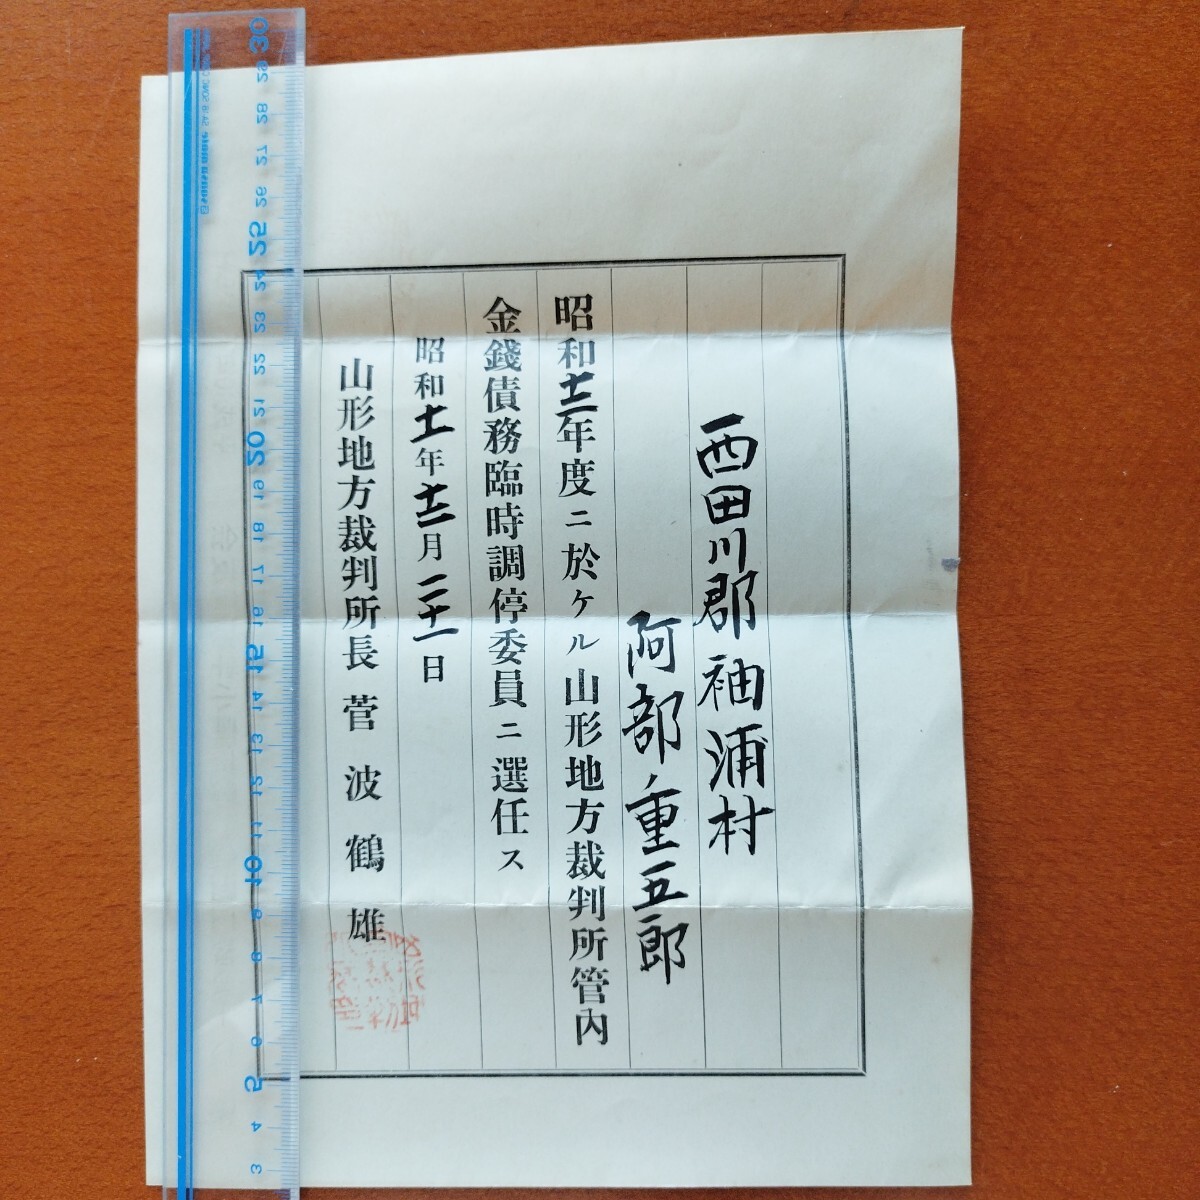 西田川郡袖浦村
阿部重五郎
昭和十二年度ニ於ケル山形地方裁判所管內
金錢債務臨時調停委員ニ選任ス
昭和十一年十二月二十一日
山形地方裁判所長 菅波鶴雄
30
29
28
27
26
25
24
23
22
21
20
19
18
17
16
15
14
13
12
11
10
9
8
7
6
5
4
3